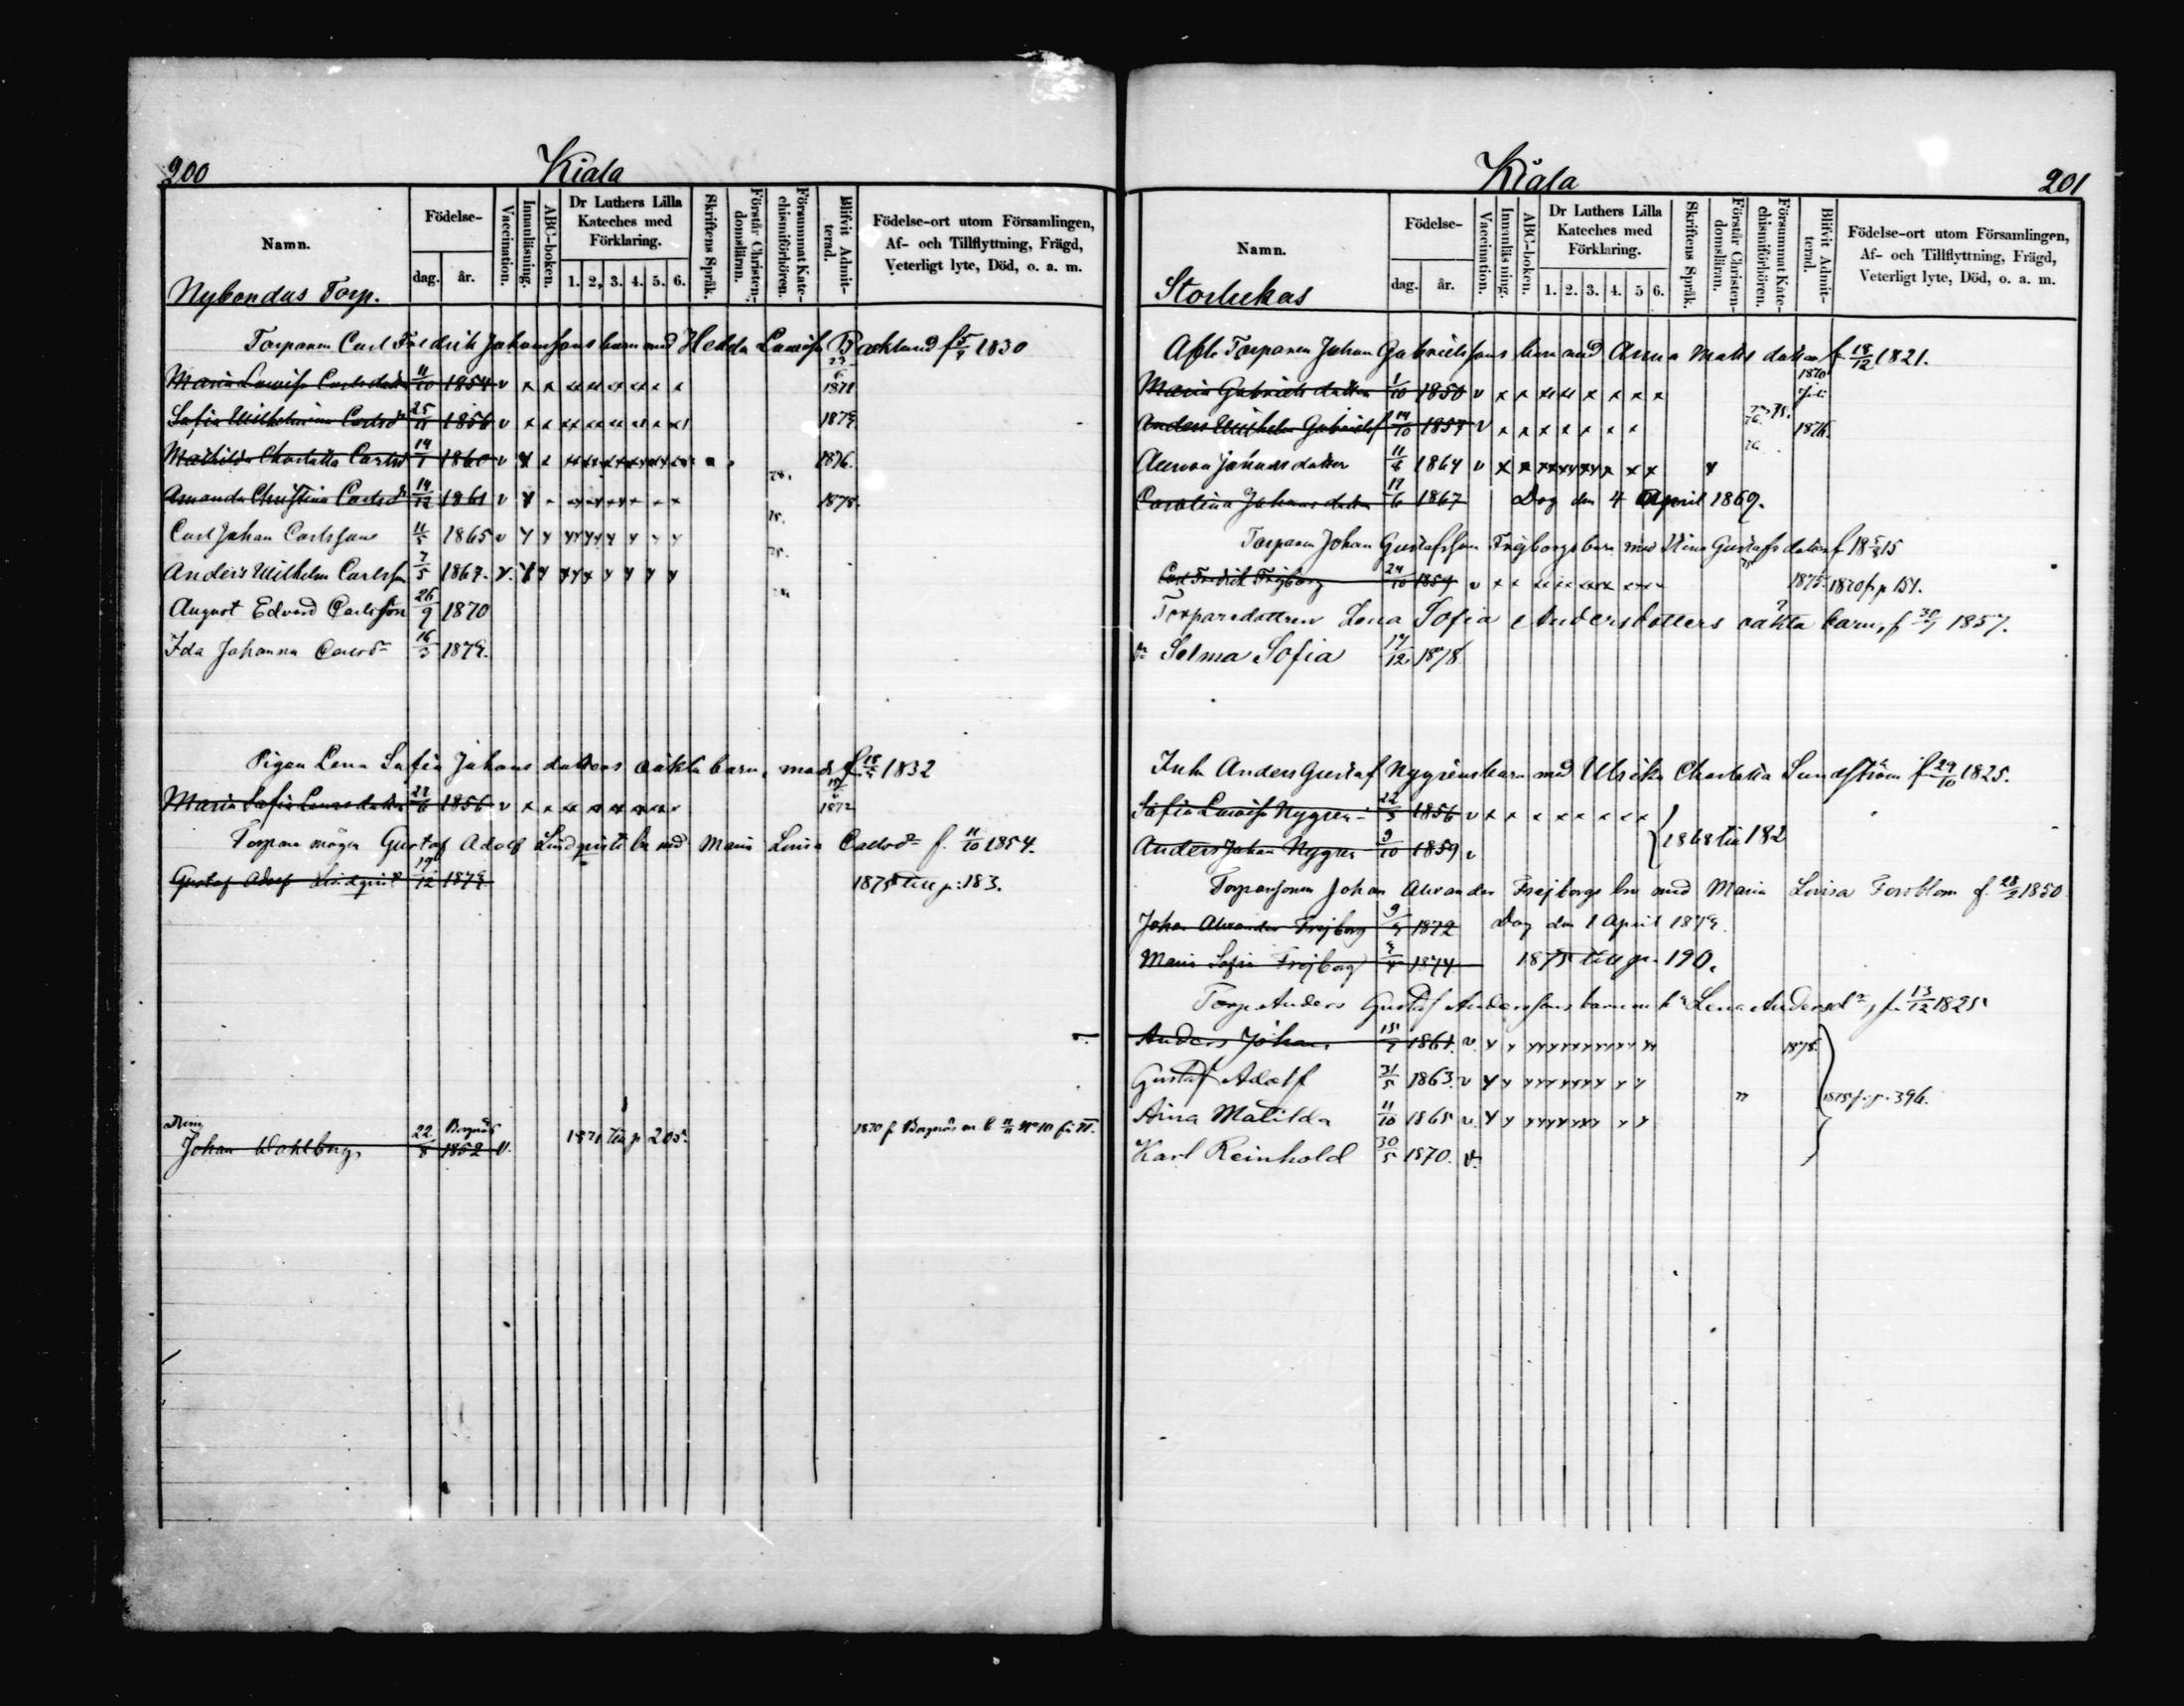 200
Kiala
Namn.
Födelse-
dag.
år.
Vaccination.
Innanläsning.
ABC-boken.
Dr Luthers Lilla
Kateches med
Förklaring.
1. 2, 3. 4. 5. 6.
Skriftens Språk.
Förstår Christen-
domsläran.
Försummat Kate-
chismiförhören.
Blifvit Admit-
terad.
Födelse-ort utom Församlingen,
Af- och Tillflyttning, Frägd,
Veterligt lyte, Död, o. a. m.
Nybondas Torp.
Torparen Carl Fredrik Johanssons barn med Hedda Lowisa Backlund f 1830
Maria Lowisa Carlsdotter 11/10 1854 v 1871
Sofia Wilhelmina Carlsd 25 1856 v
Mathilda Charlotta Carlsd 14 1860 v 1876.
Amanda Christina Carlsdr 14/12 1861 v 1878.
Carl Johan Carlsson 11/5 1865 v
Anders Wilhelm Carlsson 7/5 1867. v.
August Edvard Carlsson 26/9 1870
Ida Johanna Carlsdr 16/3
Pigan Lena Sofia Johansdotters oäkta barn, 1832
Maria Sofia 1856 v 1872
Torpare mågen Gustaf Adolf Lindqvists br med Maria Lovisa Carlsdr f. 11/10 1854.
Gustaf Adolf Lindqvist 19/12 1875 till p: 183.
Dreng
Johan Wahlberg 22/8 Borgnäs 1852 v. 1871 till p 205. 1870 f Borgnäs
201
Kiala
Namn.
Födelse-
dag.
år.
Vaccination.
Innanläsning.
ABC-boken.
Dr Luthers Lilla
Kateches med
Förklaring.
1. 2. 3. 4. 5 6.
Skriftens Språk.
Förstår Christen-
domsläran.
Försummat Kate-
chismiförhören.
Blifvit Admit-
terad.
Födelse-ort utom Församlingen,
Af- och Tillflyttning, Frägd,
Veterligt lyte, Död, o. a. m.
Storlukas
Afl. Torparen Johan Gabrielssons barn med Anna Mats dotter f. 18/12 1821.
Maria Gabrielsdotter 1/10 1850 v 1870
Anders Wilhelm Gabrielss 14/10 1857 v 1876.
Aurora Johansdotter 11 1864 v
Carolina Johansdotter 17/6 1867 Dog den 4 April 1869.
Torparen Johan Gustafsson Frejborgs barn med Stina Gustafsdotter f 1815
Carl Fredrik Frejborg 24/10 1859 v 1875. 1870 fr p 151.
Torparedottren Lena Sofia Andersdotters oäkta barn, f 1857.
Selma Sofia 1878
Inh. Anders Gustaf Nygrens barn med Ulrika Charlotta Sundström f. 29/10 1825.
Sofia Lowisa Nygren 22/3 1856 v
Anders Johan Nygren 9/10 1859 v 1868 till 182
Torparsonen Johan Alexander Frejborgs br med Maria Lovisa Forsblom f. 1850
Johan Alexander Frejborg 1872 Dog den 1 April
Maria Sofia Frejborg 1874 1875 till p. 190.
Torp. Anders Gustaf Anderssons barn m. h. Lena Andersdr, f. 13/12 1825
Anders Johan 15 1861. v. 1878.
Gustaf Adolf 31/5 1863. v
Aina Matilda 11/10 1865 v. 1875 f. p. 396.
Karl Reinhold 30/5 1870. v.